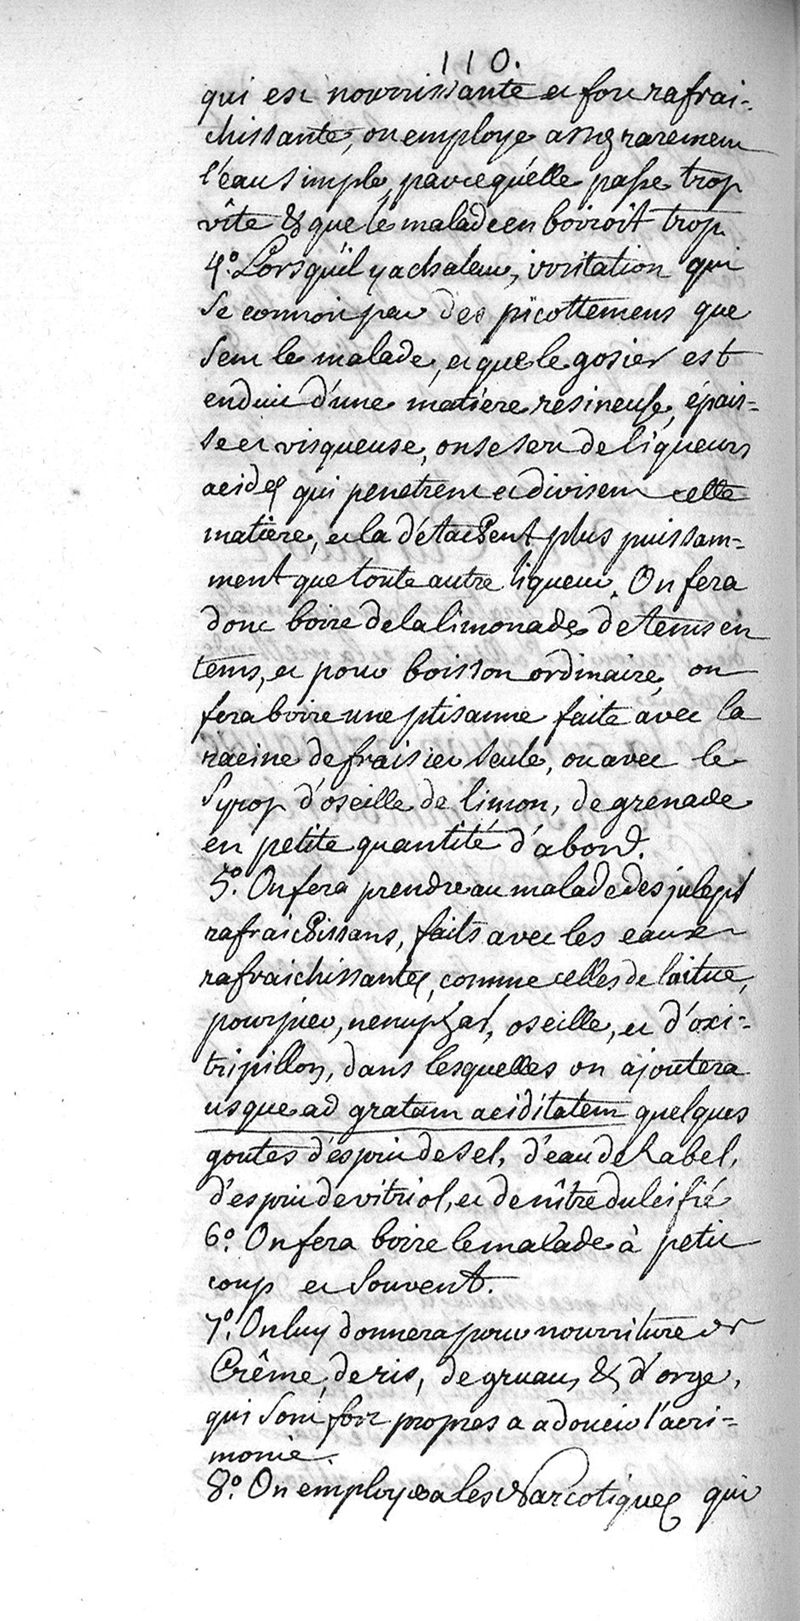 110.
qui est nourrissante et fort rafrai-
chissante, on employe assez rarement
l'eau simple, parcequ'elle passe trop
vîte & que le malade en boiroit trop.
4.° Lorsqu'il y a chaleur, irritation qui
se connoit par des picottemens que
sent le malade, et que le gosier est
enduit d'une matière resineuse, épais-
se et visqueuse, on se sert de liqueurs
acides qui penetrent et divisent cette
matière, et la détachent plus puissam-
ment que toute autre liqueur. On fera
donc boire de la limonade de tems en
tems, et pour boisson ordinaire, on
fera boire une ptisanne faite avec la
racine de fraisier seule, ou avec le
Syrop d'oseille de limon, de grenade
en petite quantité d'abord.
5.° On fera prendre au malade des julepts
rafraichissans, faits avec les eaux
rafraichissantes, comme celles de laitue,
pourpier, nenuphar, oseille, et d'oxi-
tripillon, dans lesquelles on ajoutera
usque ad gratam aciditatem quelques
goutes d'esprit de sel, d'eau de Rabel,
d'esprit de vitriol, et de nître dulcifié
6.° On fera boire le malade à petit
coup et souvent.
7.° On luy donnera pour nourriture
Crême de ris, de gruau, & d'orge,
qui sont fort propres a adoucir l'acri-
monie.
8.° On employera les Narcotiques qui